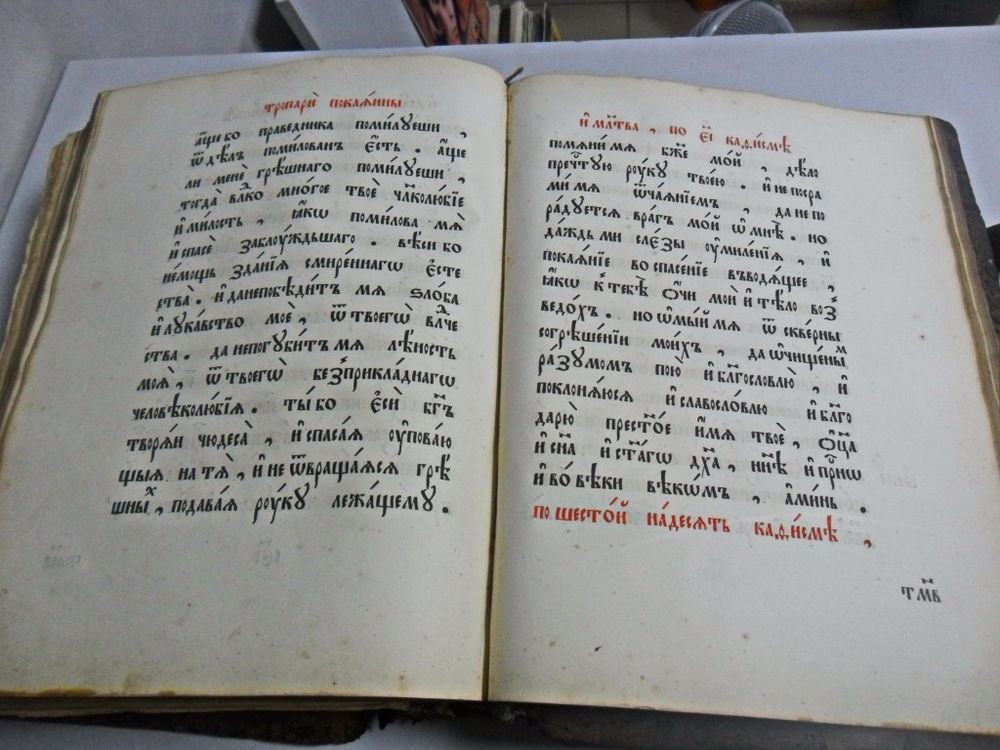 тропарѝ покая́нны
а҆́ще бо праведника поми́луеши ,
ѿ дѣ́лъ поми́лованъ є҆́сть . а҆́ще
ли менѐ грѣ́шнаго поми́луеши ,
тогда̀ влⷣко мно́гое твоѐ чл҃колю́бїе
и҆ ми́лость , ꙗ҆́кѡ поми́лова мѧ̀
и҆ спасѐ заблоу́ждьшаго . вѣ́си бо
не́мощь зда́нїѧ смире́ннагѡ є҆сте
ства̀ . и҆ да непобѣди́тъ мѧ ѕло́ба
и҆ лука́вство моѐ , ѿ твоегѡ̀ влⷣче
ства . да непогуби́тъ мѧ лѣ́ность
моѧ̀ , ѿ твоегѡ̀ безприкла́днагѡ
человѣколю́бїѧ . ты́ бо є҆сѝ бг҃ъ
творѧ́и чюдеса̀ , и҆ спаса́ѧ оу҆пова́ю
щыѧ на тѧ̀ , и҆ не ѿвраща́ѧсѧ грѣ́
шныⷯ , подава́ѧ роу́ку лежа́щему .
и҆ мл҃тва , по є҃і каѳи́смѣ
помѧни́ мѧ бж҃е мо́й , дѣ́ло
пречⷭ҇тую роуку̀ твоє́ю . и҆ не посра
ми́ мѧ ѿча́ѧнїемъ , да не по
ра́дуетсѧ вра́гъ мо́й ѡ҆ мнѣ̀ . но
да́ждь ми сле́зы оу҆миле́нїѧ , и҆
покаѧ́нїе во спасе́нїе въводѧ́щее ,
ꙗ҆́кѡ к тебѣ̀ ѻ҆́чи моѝ и҆ тѣ́ло воз
ведо́хъ . но ѡ҆мы́й мѧ ѿ скве́рны
согрѣше́нїи мои́хъ , да ѡ҆чище́ныⷨ
ра́зумомъ пою̀ и҆ бл҃гословлю̀ , и҆
поклонѧ́юсѧ и҆ славосло́влю и҆ бл҃го
дарю̀ престⷪ҇е и҆́мѧ твоѐ , ѻ҆ц҃а
и҆ сн҃а и҆ ст҃агѡ дх҃а , нн҃ѣ и҆ прⷭ҇нѡ
и҆ во́ вѣки вѣкѡ́мъ , а҆ми́нь .
по шесто́й на́десѧть каѳи́смѣ ,
тм҃в